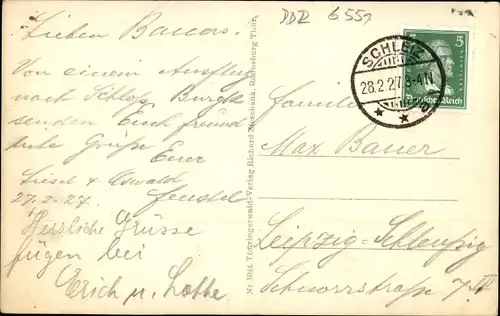 Lieben Bauers.
Von einem Ausflug
nach Schloß Burgk
senden Euch freund
liche Grüße Euer
Liesel & Oswald
27.2.27.
Herzliche Grüsse
fügen bei
Erich u. Lotte.
Nr. 1044 Thüringerwald-Verlag Richard Zieschank, Rudolstadt Thür.
DDR 6551
SCHLEIZ
28.2.27.3-4N
5 5
Deutsches Reich
Familie
Max Bauer
Leipzig-Schleußig
Schnorrstraße